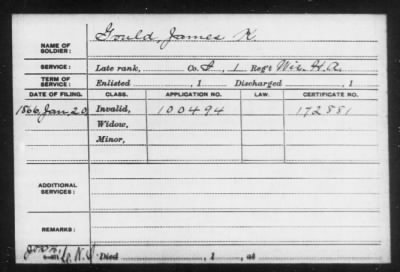 NAME OF SOLDIER: Gould, James K.
SERVICE: Late rank, Co. F, 1 Reg't Wis. H.A.
TERM OF SERVICE: Enlisted , 1 Discharged , 1
DATE OF FILING. CLASS. APPLICATION NO. LAW. CERTIFICATE NO.
1866, Jan. 20 Invalid, 100494 172881
Widow,
Minor,
ADDITIONAL SERVICES:
REMARKS:
Died , 1 , at